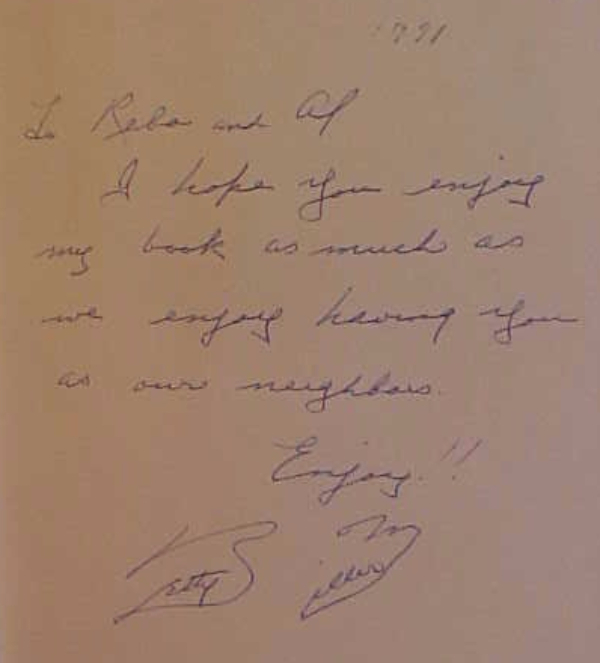 1991
To Reba and Al
I hope you enjoy
my book as much as
we enjoy having you
as our neighbors.
Enjoy!!
Betty Miller